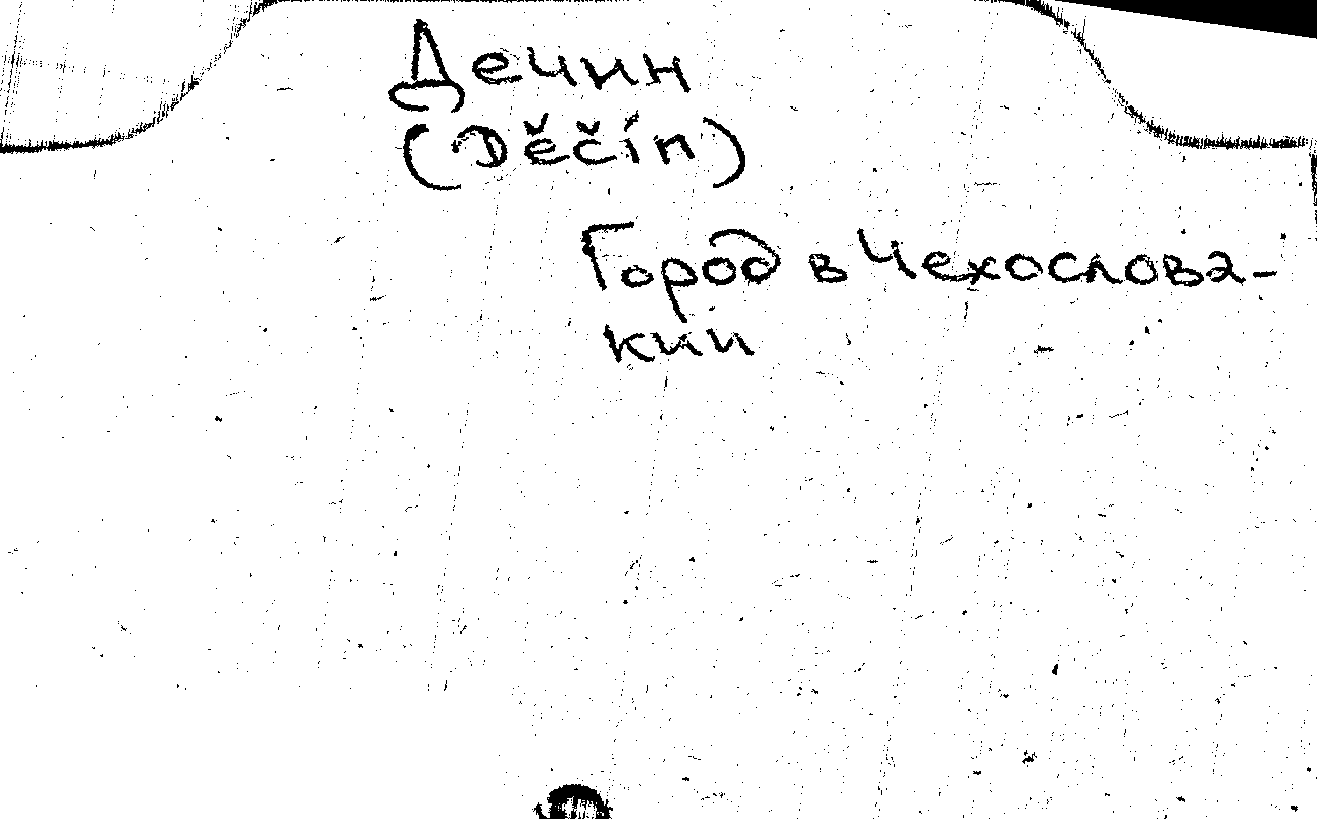 Дечин
(Děčín)
Город в Чехослова-
кии